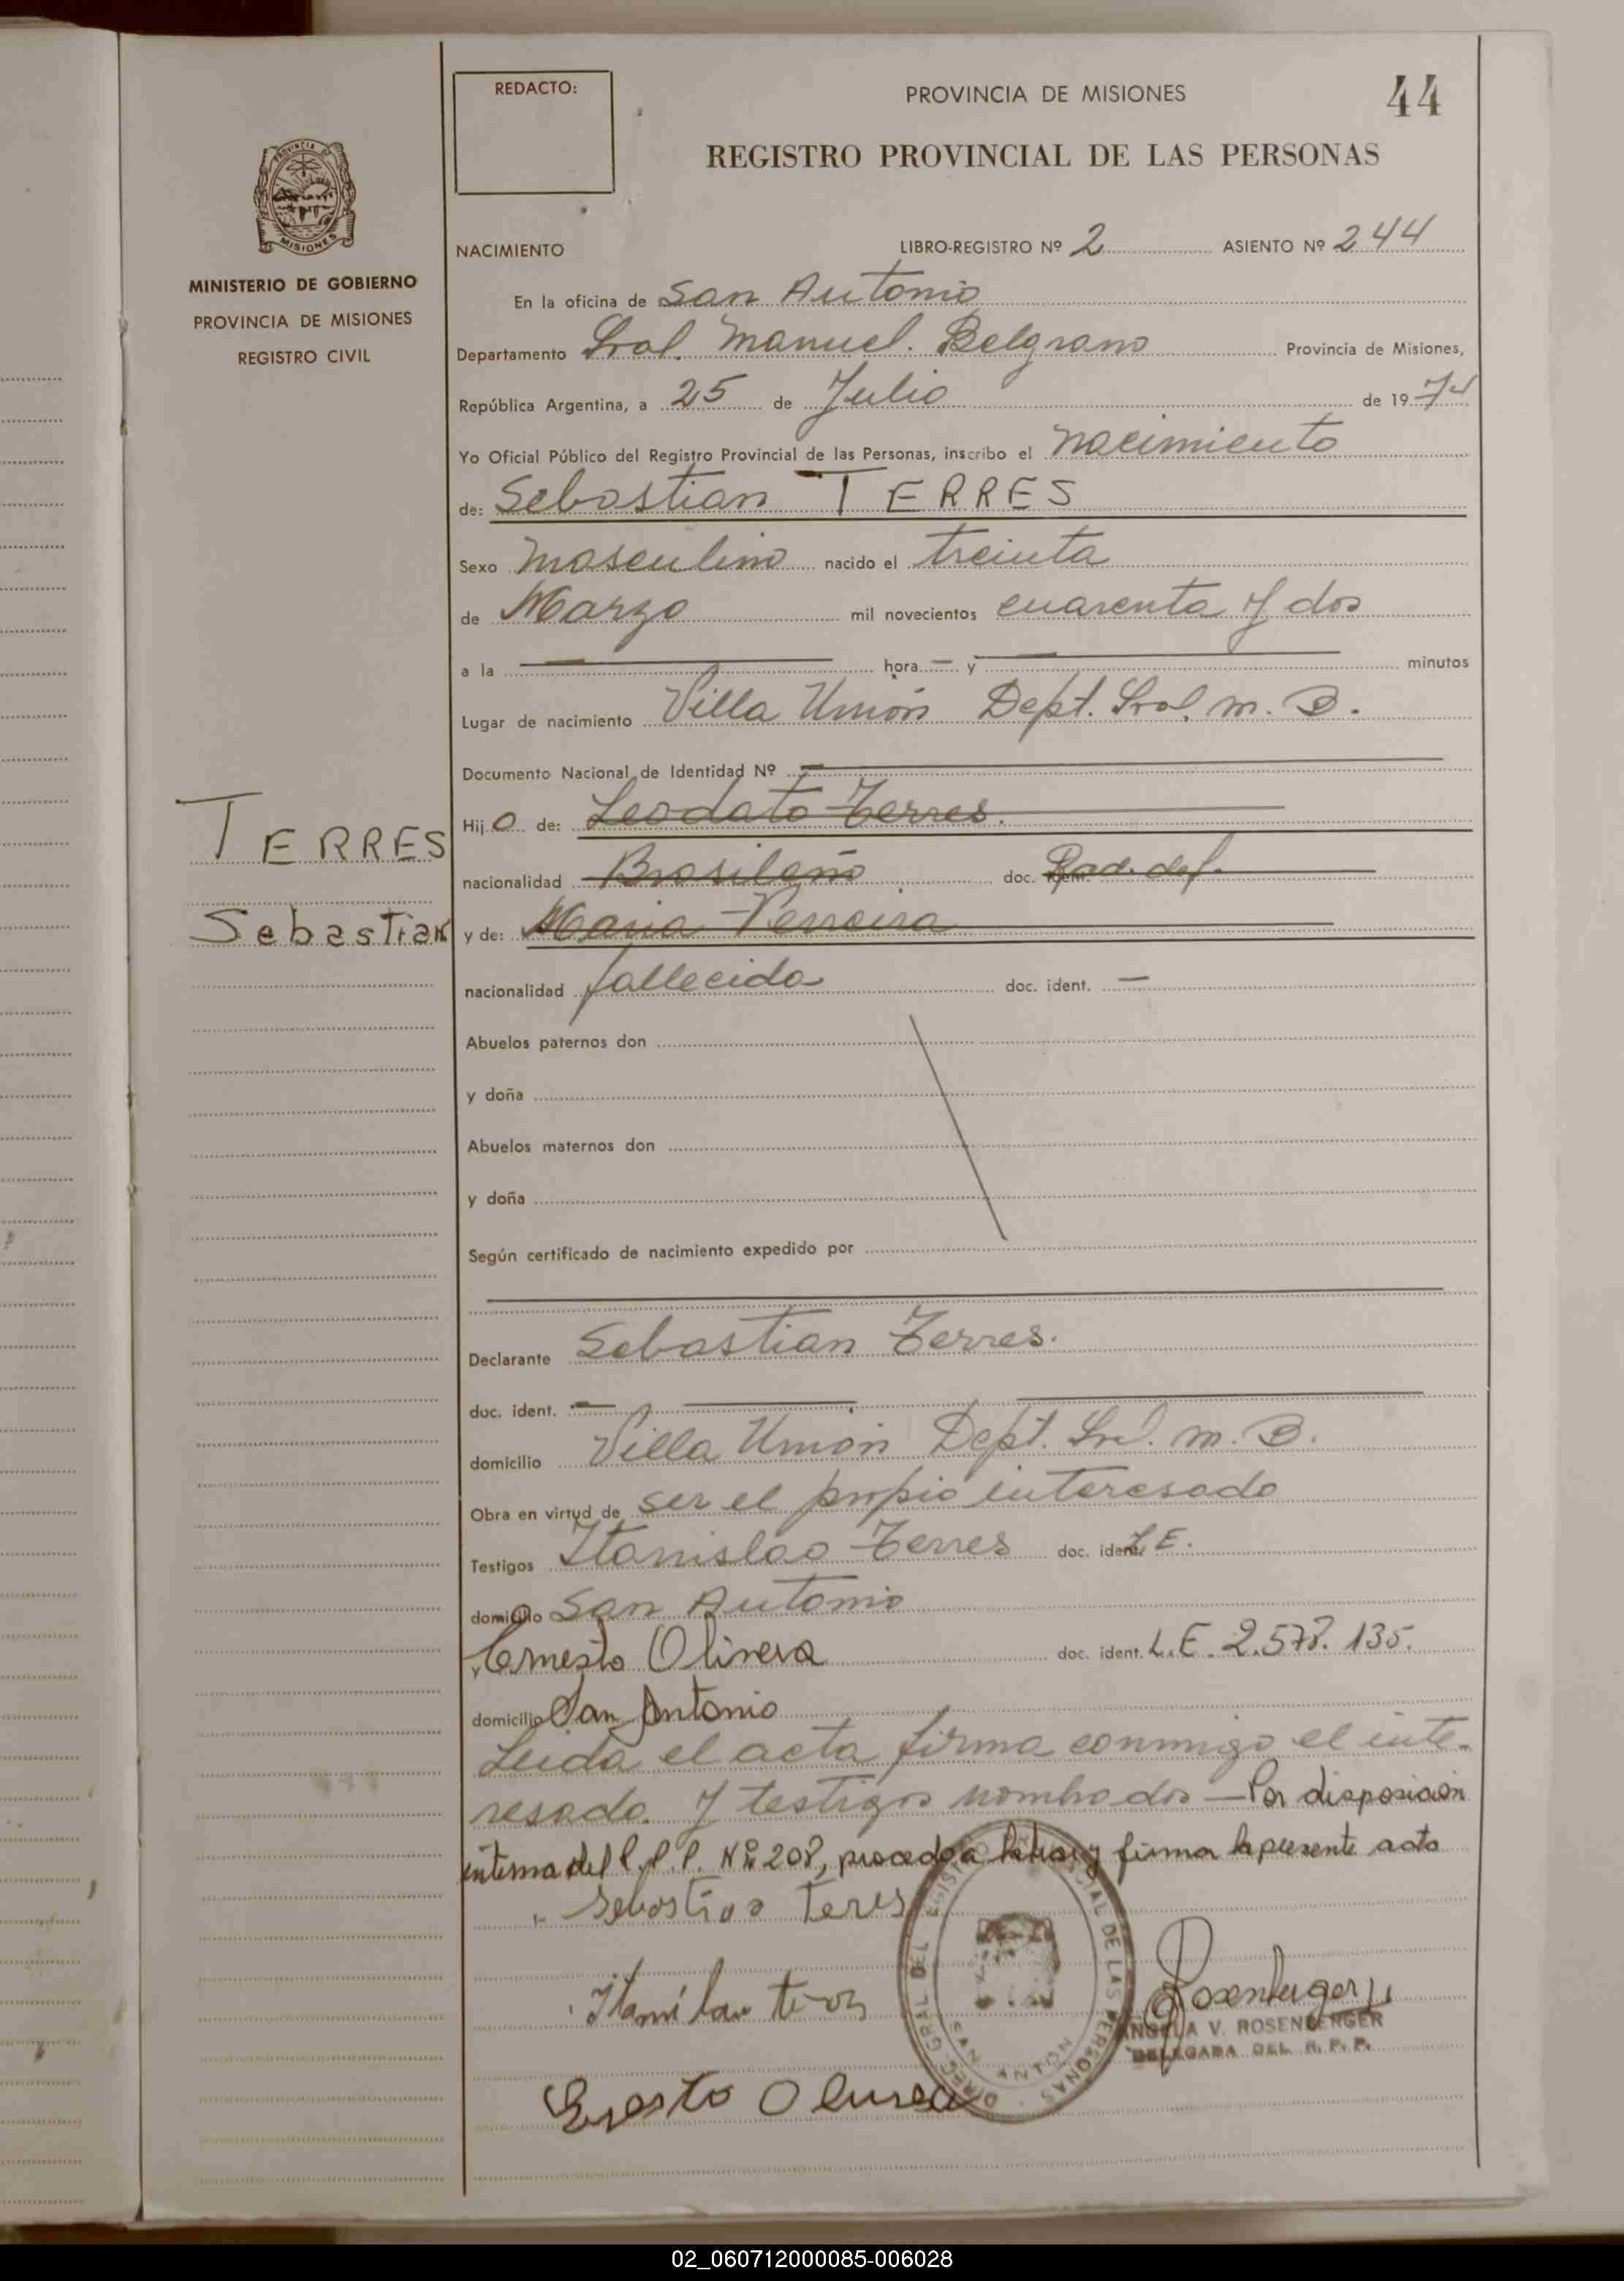 REDACTO:
PROVINCIA DE MISIONES
44
REGISTRO PROVINCIAL DE LAS PERSONAS
PROVINCIA DE
MISIONES
MINISTERIO DE GOBIERNO
PROVINCIA DE MISIONES
REGISTRO CIVIL
NACIMIENTO LIBRO-REGISTRO Nº 2 ASIENTO Nº 244
En la oficina de San Antonio
Departamento Gral. Manuel. Belgrano Provincia de Misiones,
República Argentina, a 25 de Julio de 1974
Yo Oficial Público del Registro Provincial de las Personas, inscribo el nacimiento
de: Sebastian TERRES
Sexo Masculino nacido el treinta
de Marzo mil novecientos cuarenta y dos
a la — hora — y — minutos
Lugar de nacimiento Villa Unión Dept. Gral. M. B.
Documento Nacional de Identidad Nº —
TERRES
Sebastian
Hijo de: Leodato Terres.
nacionalidad Brasileño doc. ident. Rad. def.
y de: Maria Ferreira
nacionalidad fallecida doc. ident. —
Abuelos paternos don
y doña
Abuelos maternos don
y doña
Según certificado de nacimiento expedido por
Declarante Sebastian Terres.
doc. ident. —
domicilio Villa Unión Dept. Gral. M. B.
Obra en virtud de ser el propio interesado
Testigos Itanislao Terres doc. ident. L.E.
domicilio San Antonio
y Ernesto Olivera doc. ident. L.E. 2.578.135.
domicilio San Antonio
Leida el acta firma conmigo el inte-
resado. y testigos nombrados — Por disposición
interna del R.P.P. Nº 208, procedo a y firmar la presente acta
Sebastian Teres
Itanilau
Ernesto Olivera
DIREC GRAL DEL REGISTRO PROVINCIAL DE LAS PERSONAS
SAN ANTONIO
Rosenberger
ANGELA V. ROSENBERGER
DELEGADA DEL R. P. P.
02_060712000085-006028